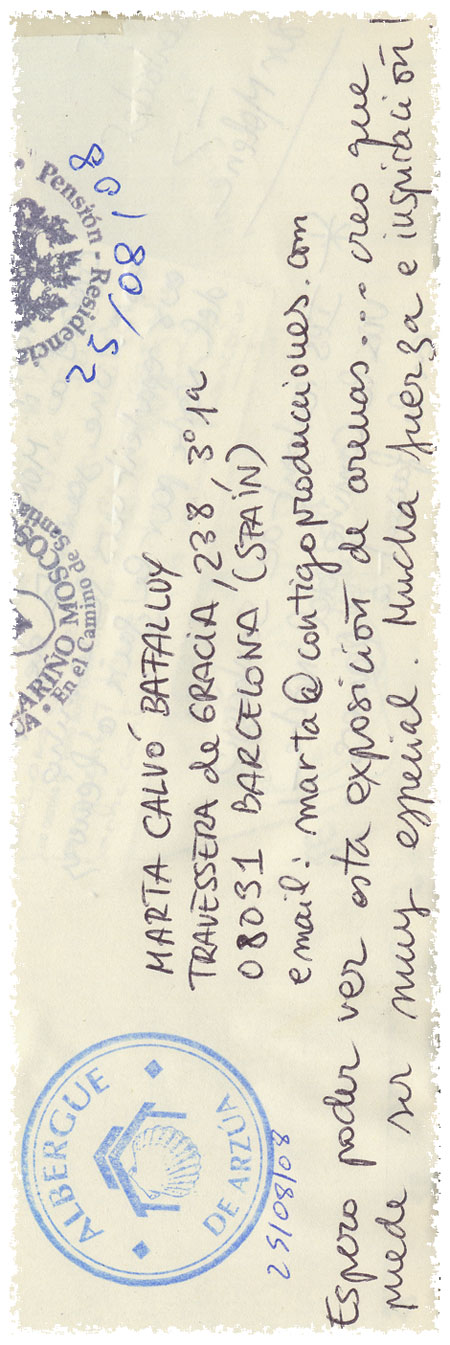 ALBERGUE
DE ARZÚA
25/08/08
ARIÑO MOSCOS
En el Camino de Santia
Pensión - Residencia
25/08/08
MARTA CALVÓ
TRAVESSERA de GRACIA, 238, 3º 1ª
08031 BARCELONA (SPAÍN)
email: marta@contigoproducciones.com
Espero poder ver esta exposición de arenas... creo que
puede ser muy especial. Mucha fuerza e inspiración!